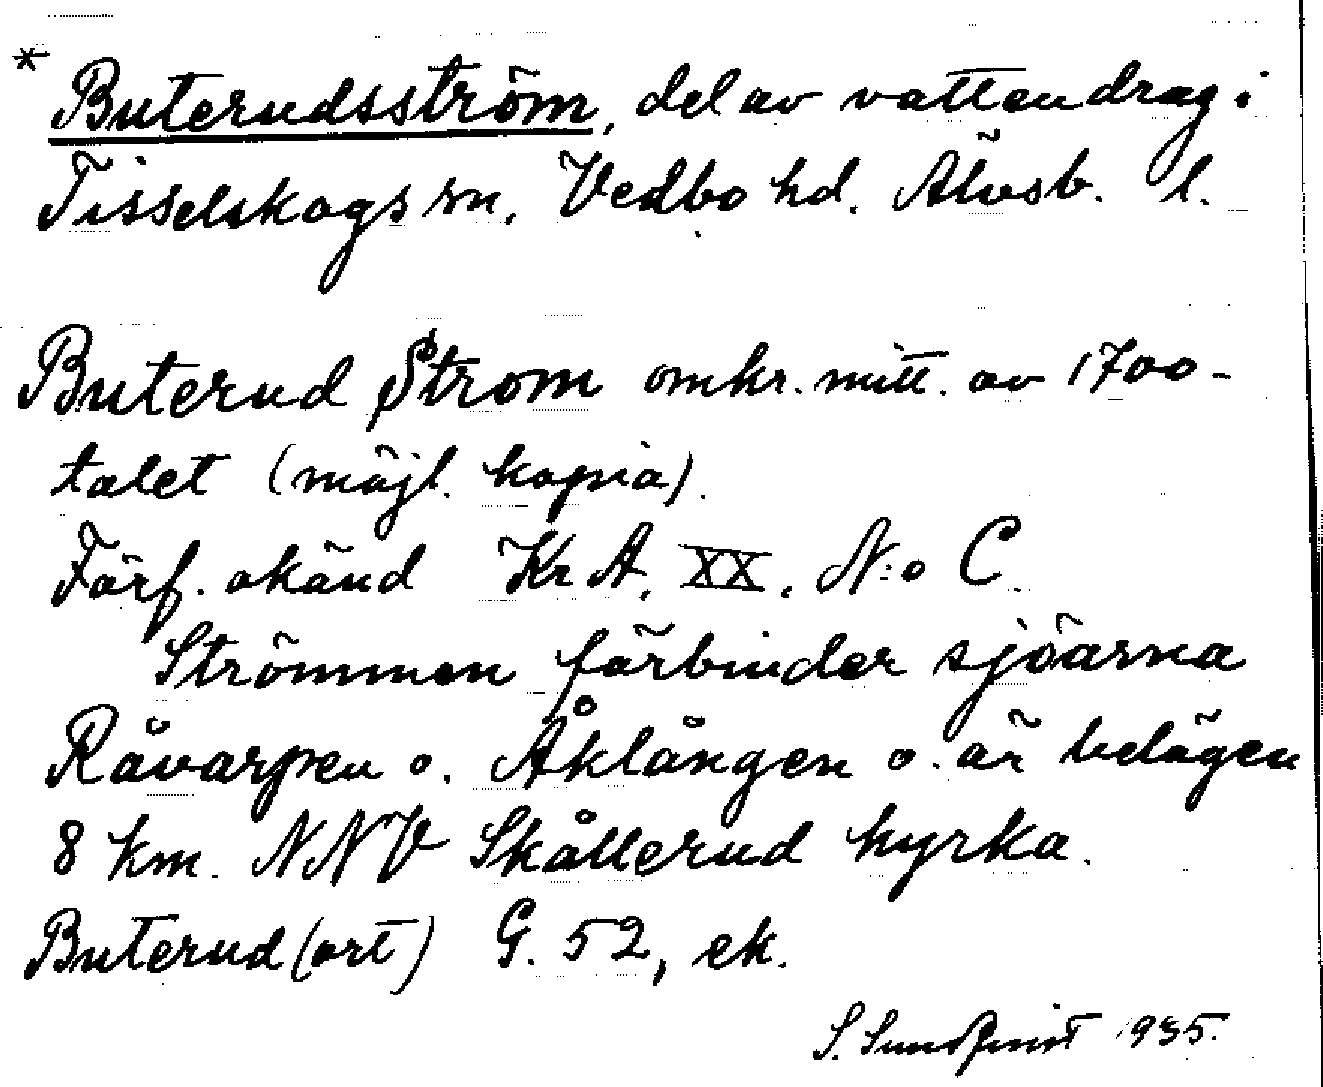 * Buterudsström, del av vattendrag i
Tisselskogs sn. Vedbo hd. Älvsb. l.
Buterud Ström omkr. mitt. av 1700-
talet (möjl. kopia).
Förf. okänd Kr A. XX. N:o C
Strömmen förbinder sjöarna
Råvarpen o. Åklången o. är belägen
8 km. NNV Skållerud kyrka.
Buterud (ort) G. 52, ek.
S. Sundqvist 1935.